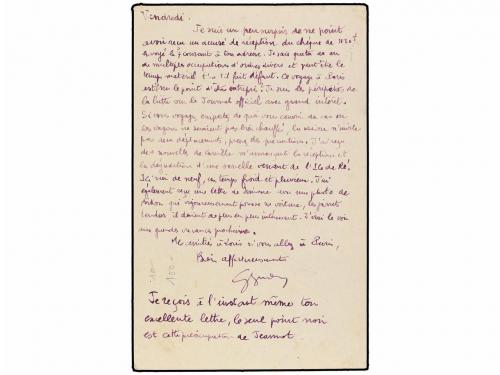 Vendredi.
Je suis un peu surpris de ne point
avoir reçu un accusé de réception du chèque de 1020f
envoyé le 7 courant à ton adresse. Je sais que tu as eu
de multiples occupations d'ordres divers et peut être le
temps matériel t'a-t-il fait défaut. Ce voyage à Paris
est sur le point d'être entrepris? Je suis les péripéties de
la lutte sur le Journal officiel avec grand intérêt.
Si vous voyagez, en cas où
les wagons ne seraient pas bien chauffés, la saison n'invite
pas aux déplacements, prenez des précautions. J'ai reçu
des nouvelles de famille m'annonçant la réception et
la dégustation d'une venant de l'Ile de Ré.
Ici, rien de neuf, un temps froid et pluvieux. J'ai
également reçu une lettre de avec une photo de
qui vigoureusement pousse sa voiture, les jarrets
tendus il devient de plus en plus intéressant. J'irai le voir
aux grandes vacances prochaines.
Mes amitiés à Louis si vous allez à Paris,
Bien affectueusement
10-
100-
Je reçois à l'instant même ton
excellente lettre, le seul point noir
est cette préoccupation de Jeannot.